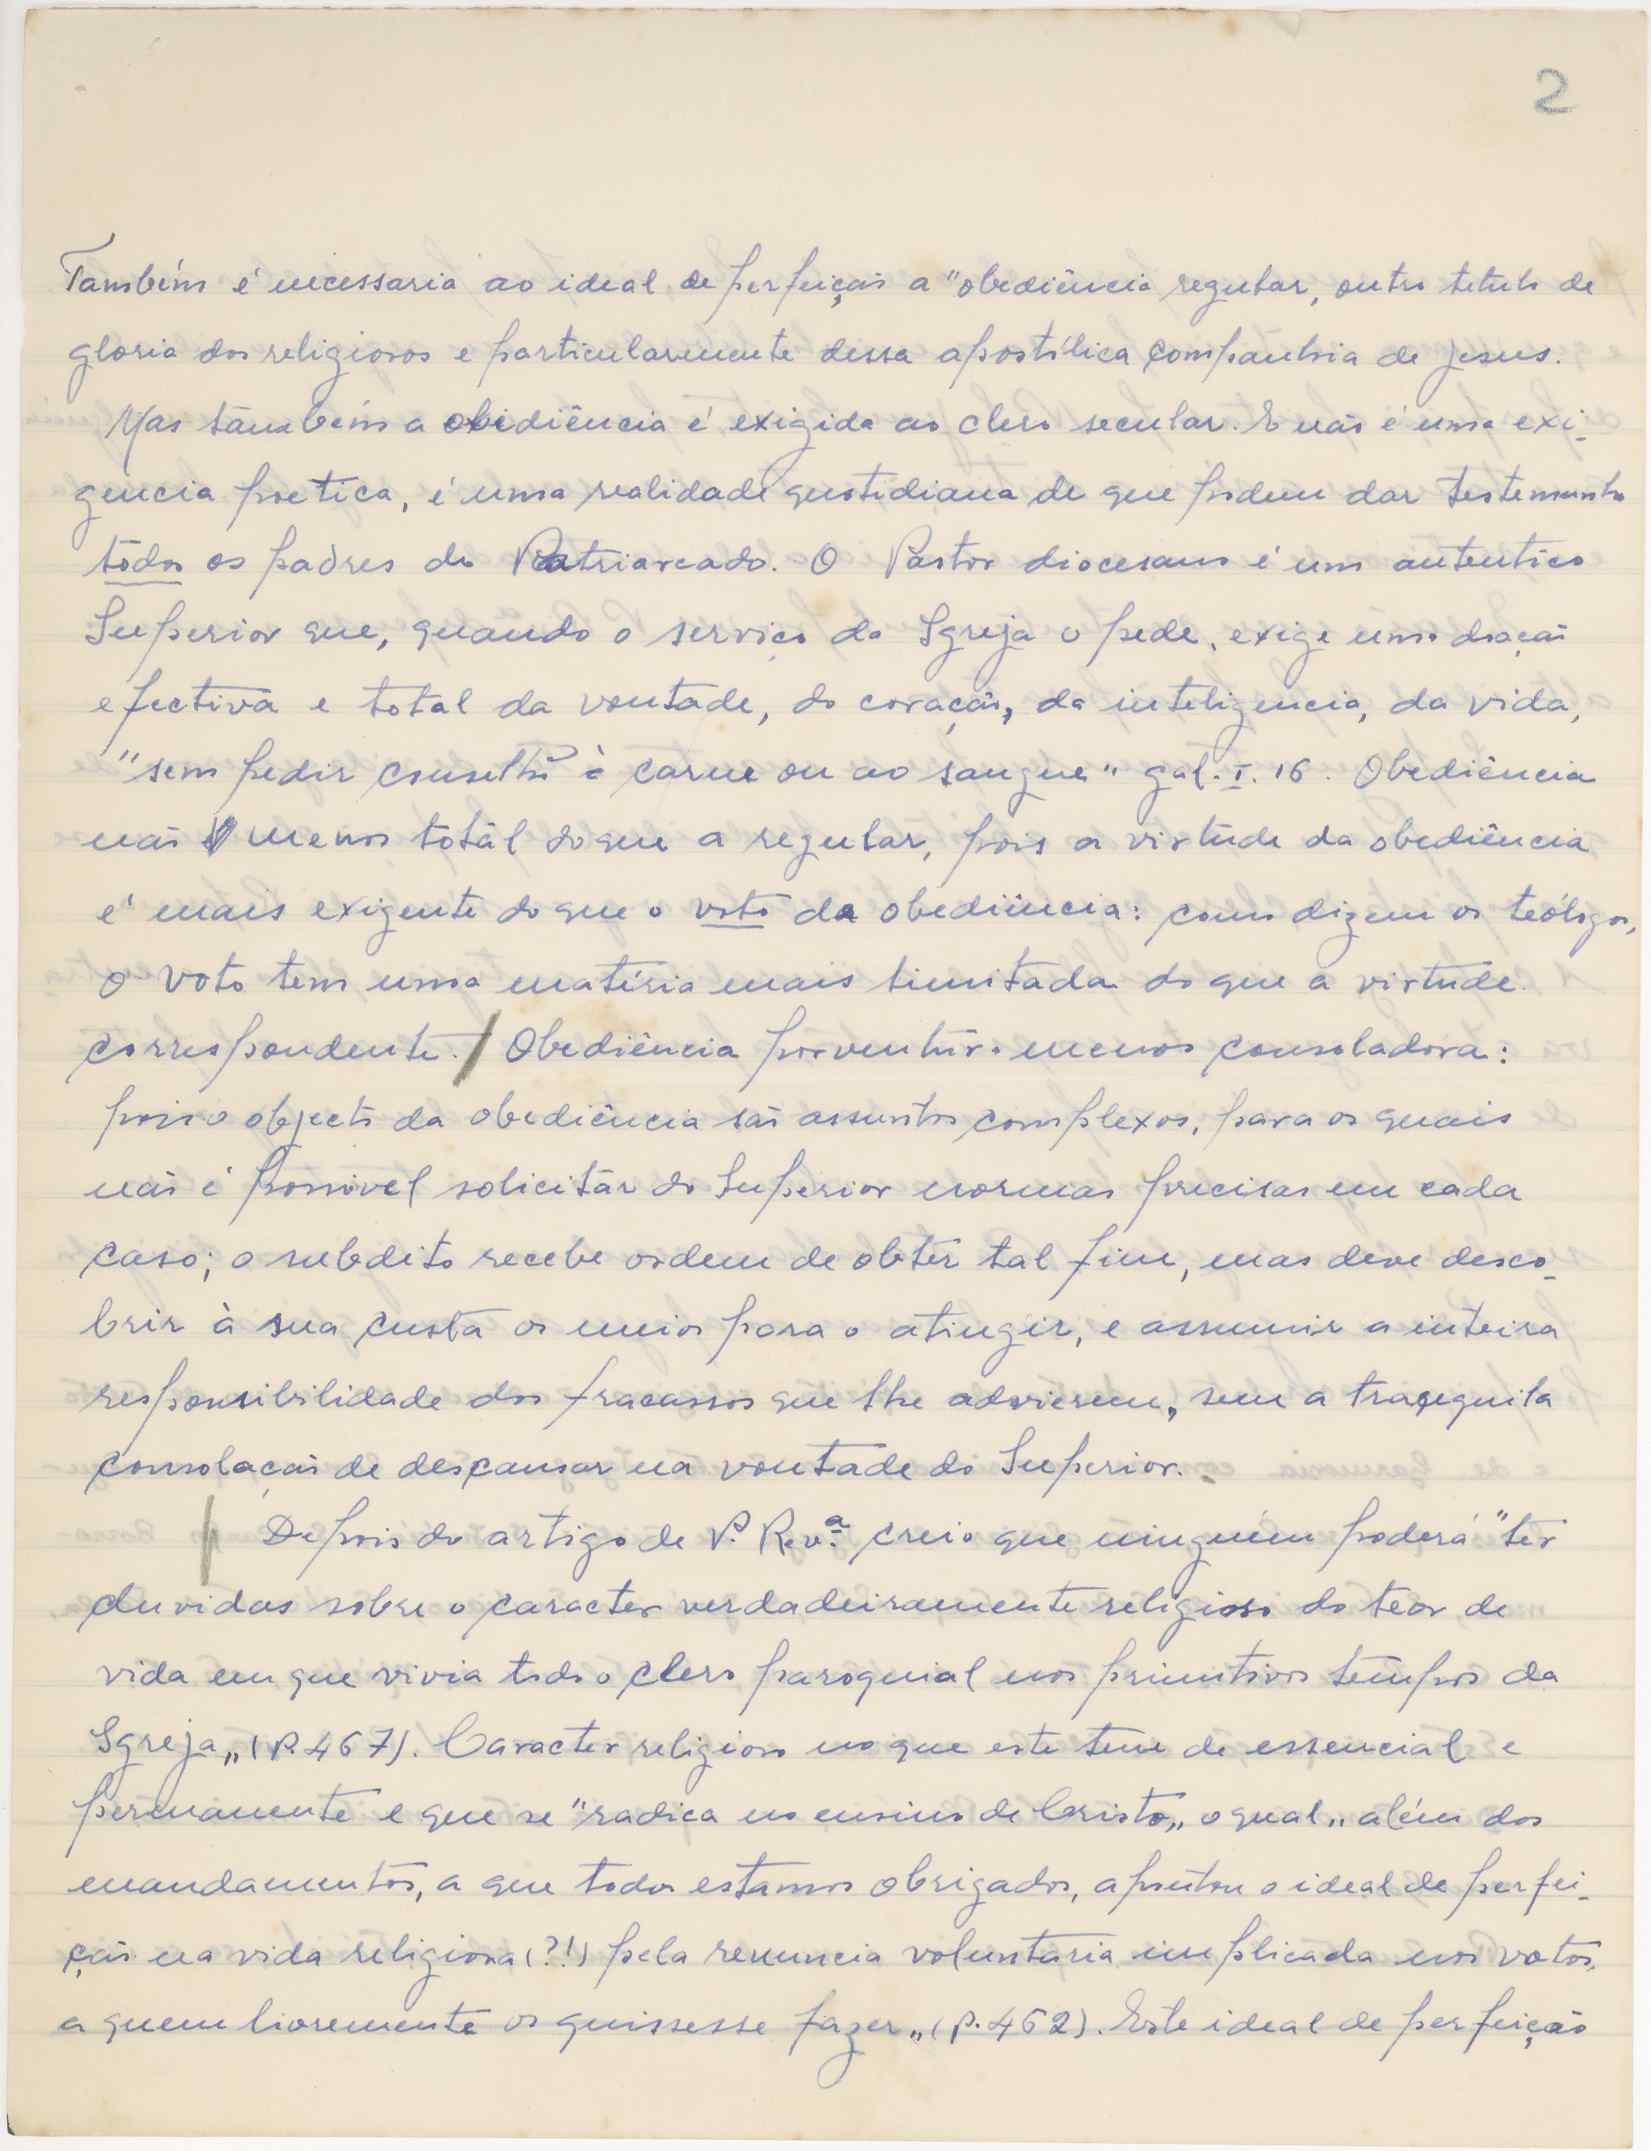 2
Também é necessaria ao ideal de perfeição a "obediência regular, outro titulo de
gloria dos religiosos e particularmente dessa apostólica companhia de Jesus.
Mas também a obediência é exigida ao clero secular. E não é uma exi-
gencia poetica, é uma realidade quotidiana de que podem dar testemunho
todos os padres do Patriarcado. O Pastor diocesano é um autentico
Superior que, quando o serviço da Igreja o pede, exige uma doação
efectiva e total da vontade, do coração, da inteligencia, da vida,
"sem pedir conselho à carne ou ao sangue" gal. I. 16. Obediência
não menos total do que a regular, pois a virtude da obediência
é mais exigente do que o voto da obediência: como dizem os teólogos,
o voto tem uma matéria mais limitada do que a virtude
correspondente. / Obediência porventura menos consoladora:
pois o objecto da obediência são assuntos complexos, para os quais
não é possivel solicitar do Superior normas precisas em cada
caso; o subdito recebe ordem de obter tal fim, mas deve desco-
brir à sua custa os meios para o atingir, e assumir a inteira
responsibilidade dos fracassos que lhe advierem, sem a tranquila
consolação de descansar na vontade do Superior.
/ Depois do artigo de V. Rev.ª creio que ninguém poderá "ter
duvidas sobre o caracter verdadeiramente religioso do teor de
vida em que vivia todo o clero paroquial nos primitivos tempos da
Igreja„ (p. 467). Caracter religioso no que este tem de essencial e
permanente e que se "radica no ensino de Cristo„ o qual „ além dos
mandamentos, a que todos estamos obrigados, apontou o ideal de perfei-
ção na vida religiosa (?!) pela renuncia voluntaria implicada nos votos,
a quem livremente os quissesse fazer„ (p. 462). Este ideal de perfeição